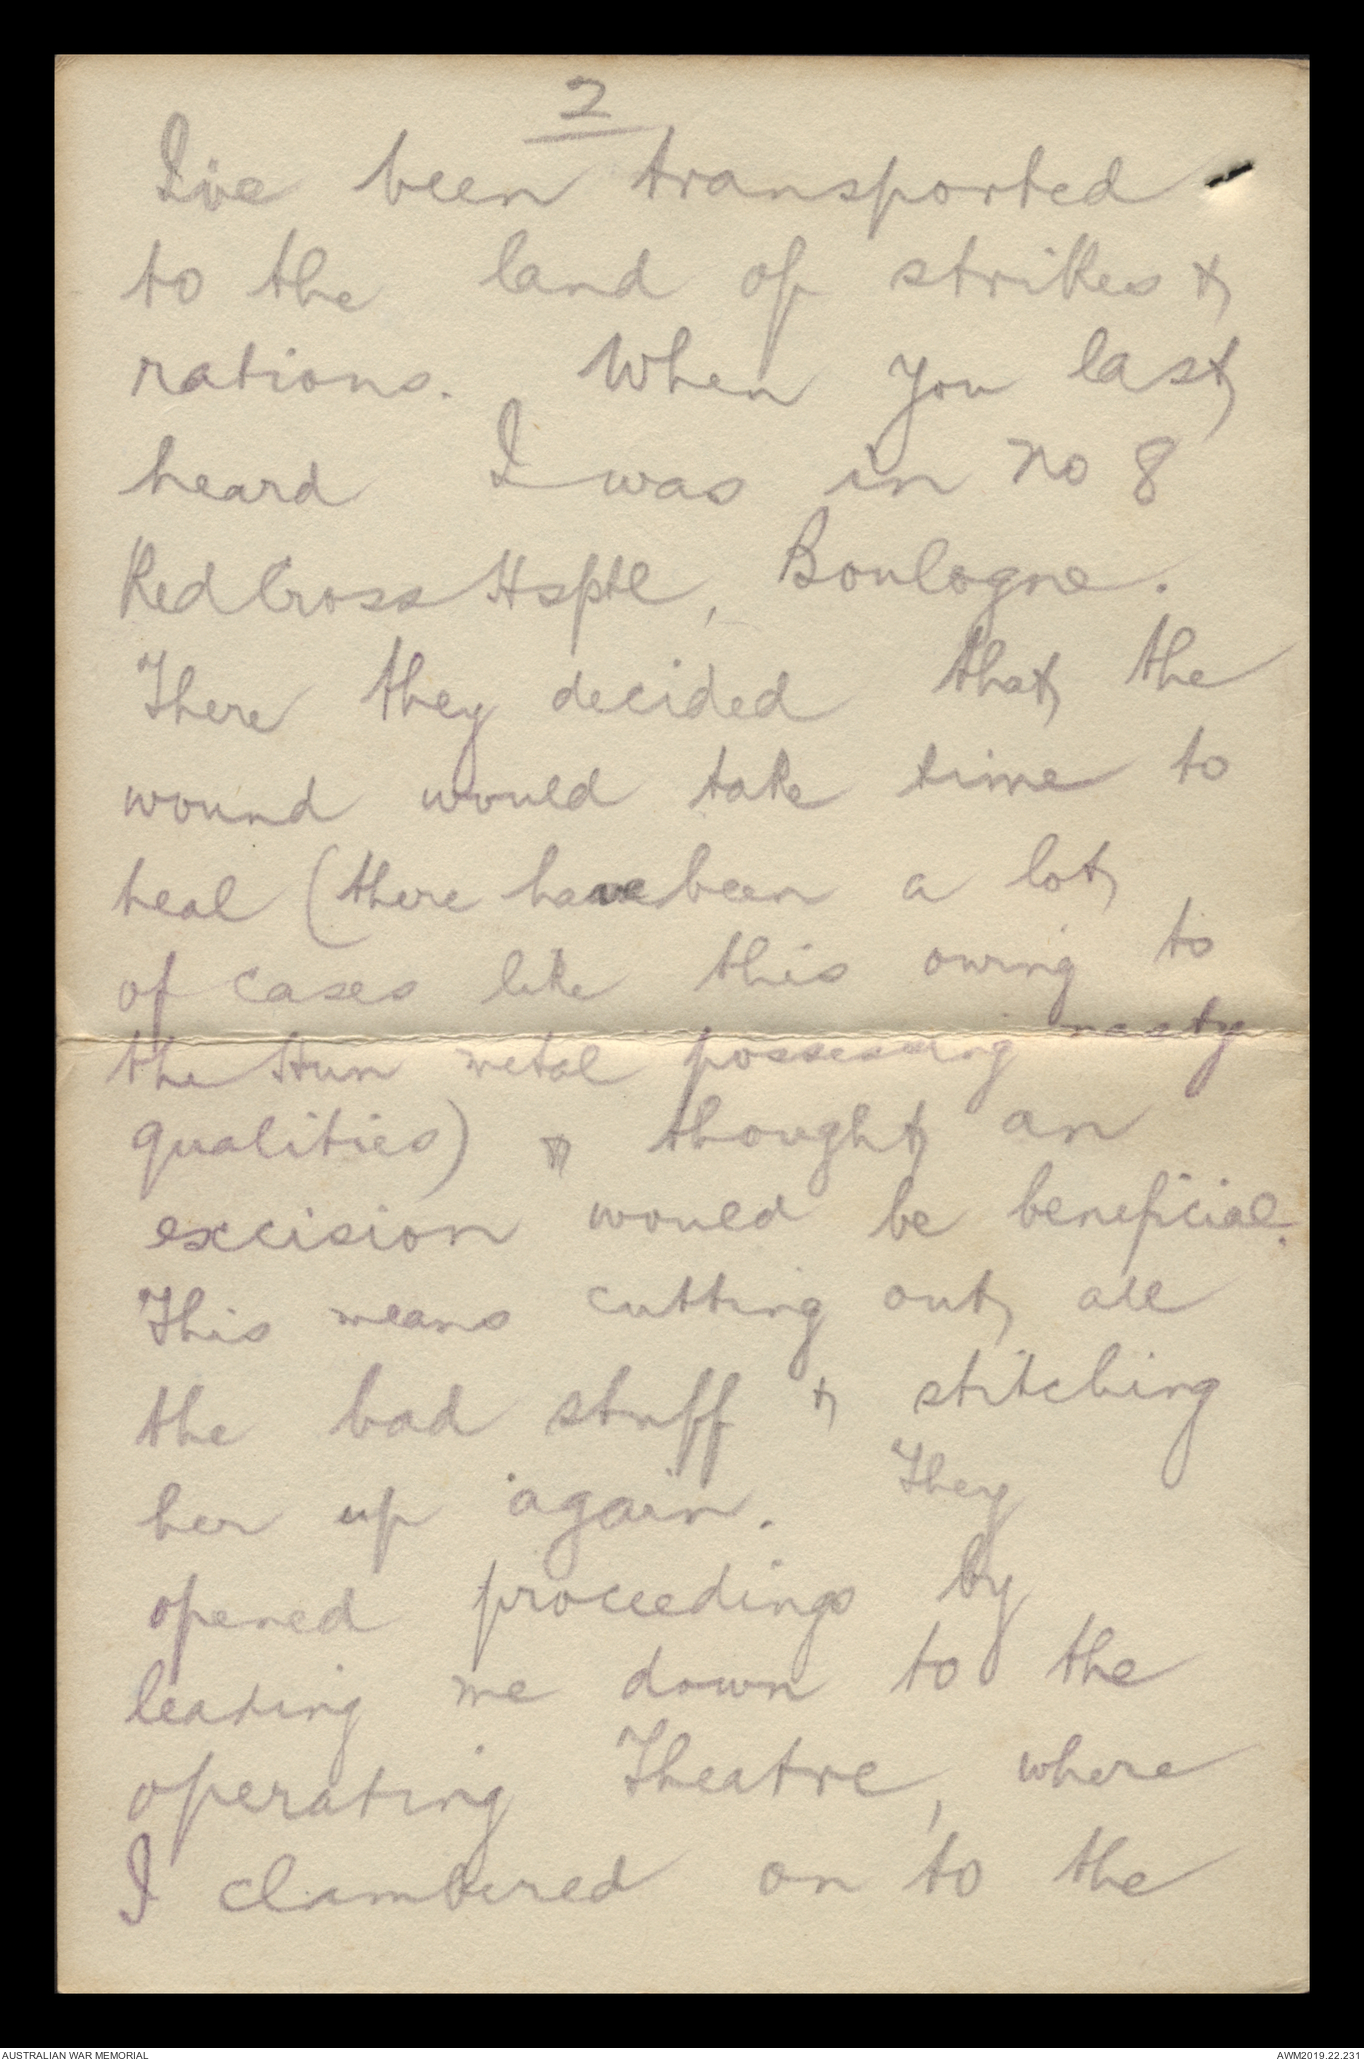 2
I've been transported
to the land of strikes &
rations. When you last
heard I was in No 8
Red Cross Hsptl, Boulogne.
There they decided that the
wound would take time to
heal (there have been a lot
of cases like this owing to
the Hun metal possessing nasty
qualities) & thought an
excision would be beneficial.
This means cutting out all
the bad stuff & stitching
her up again. They
opened proceedings by
leading me down to the
operating Theatre, where
I clambered on to the
AUSTRALIAN WAR MEMORIAL
AWM2019.22.231